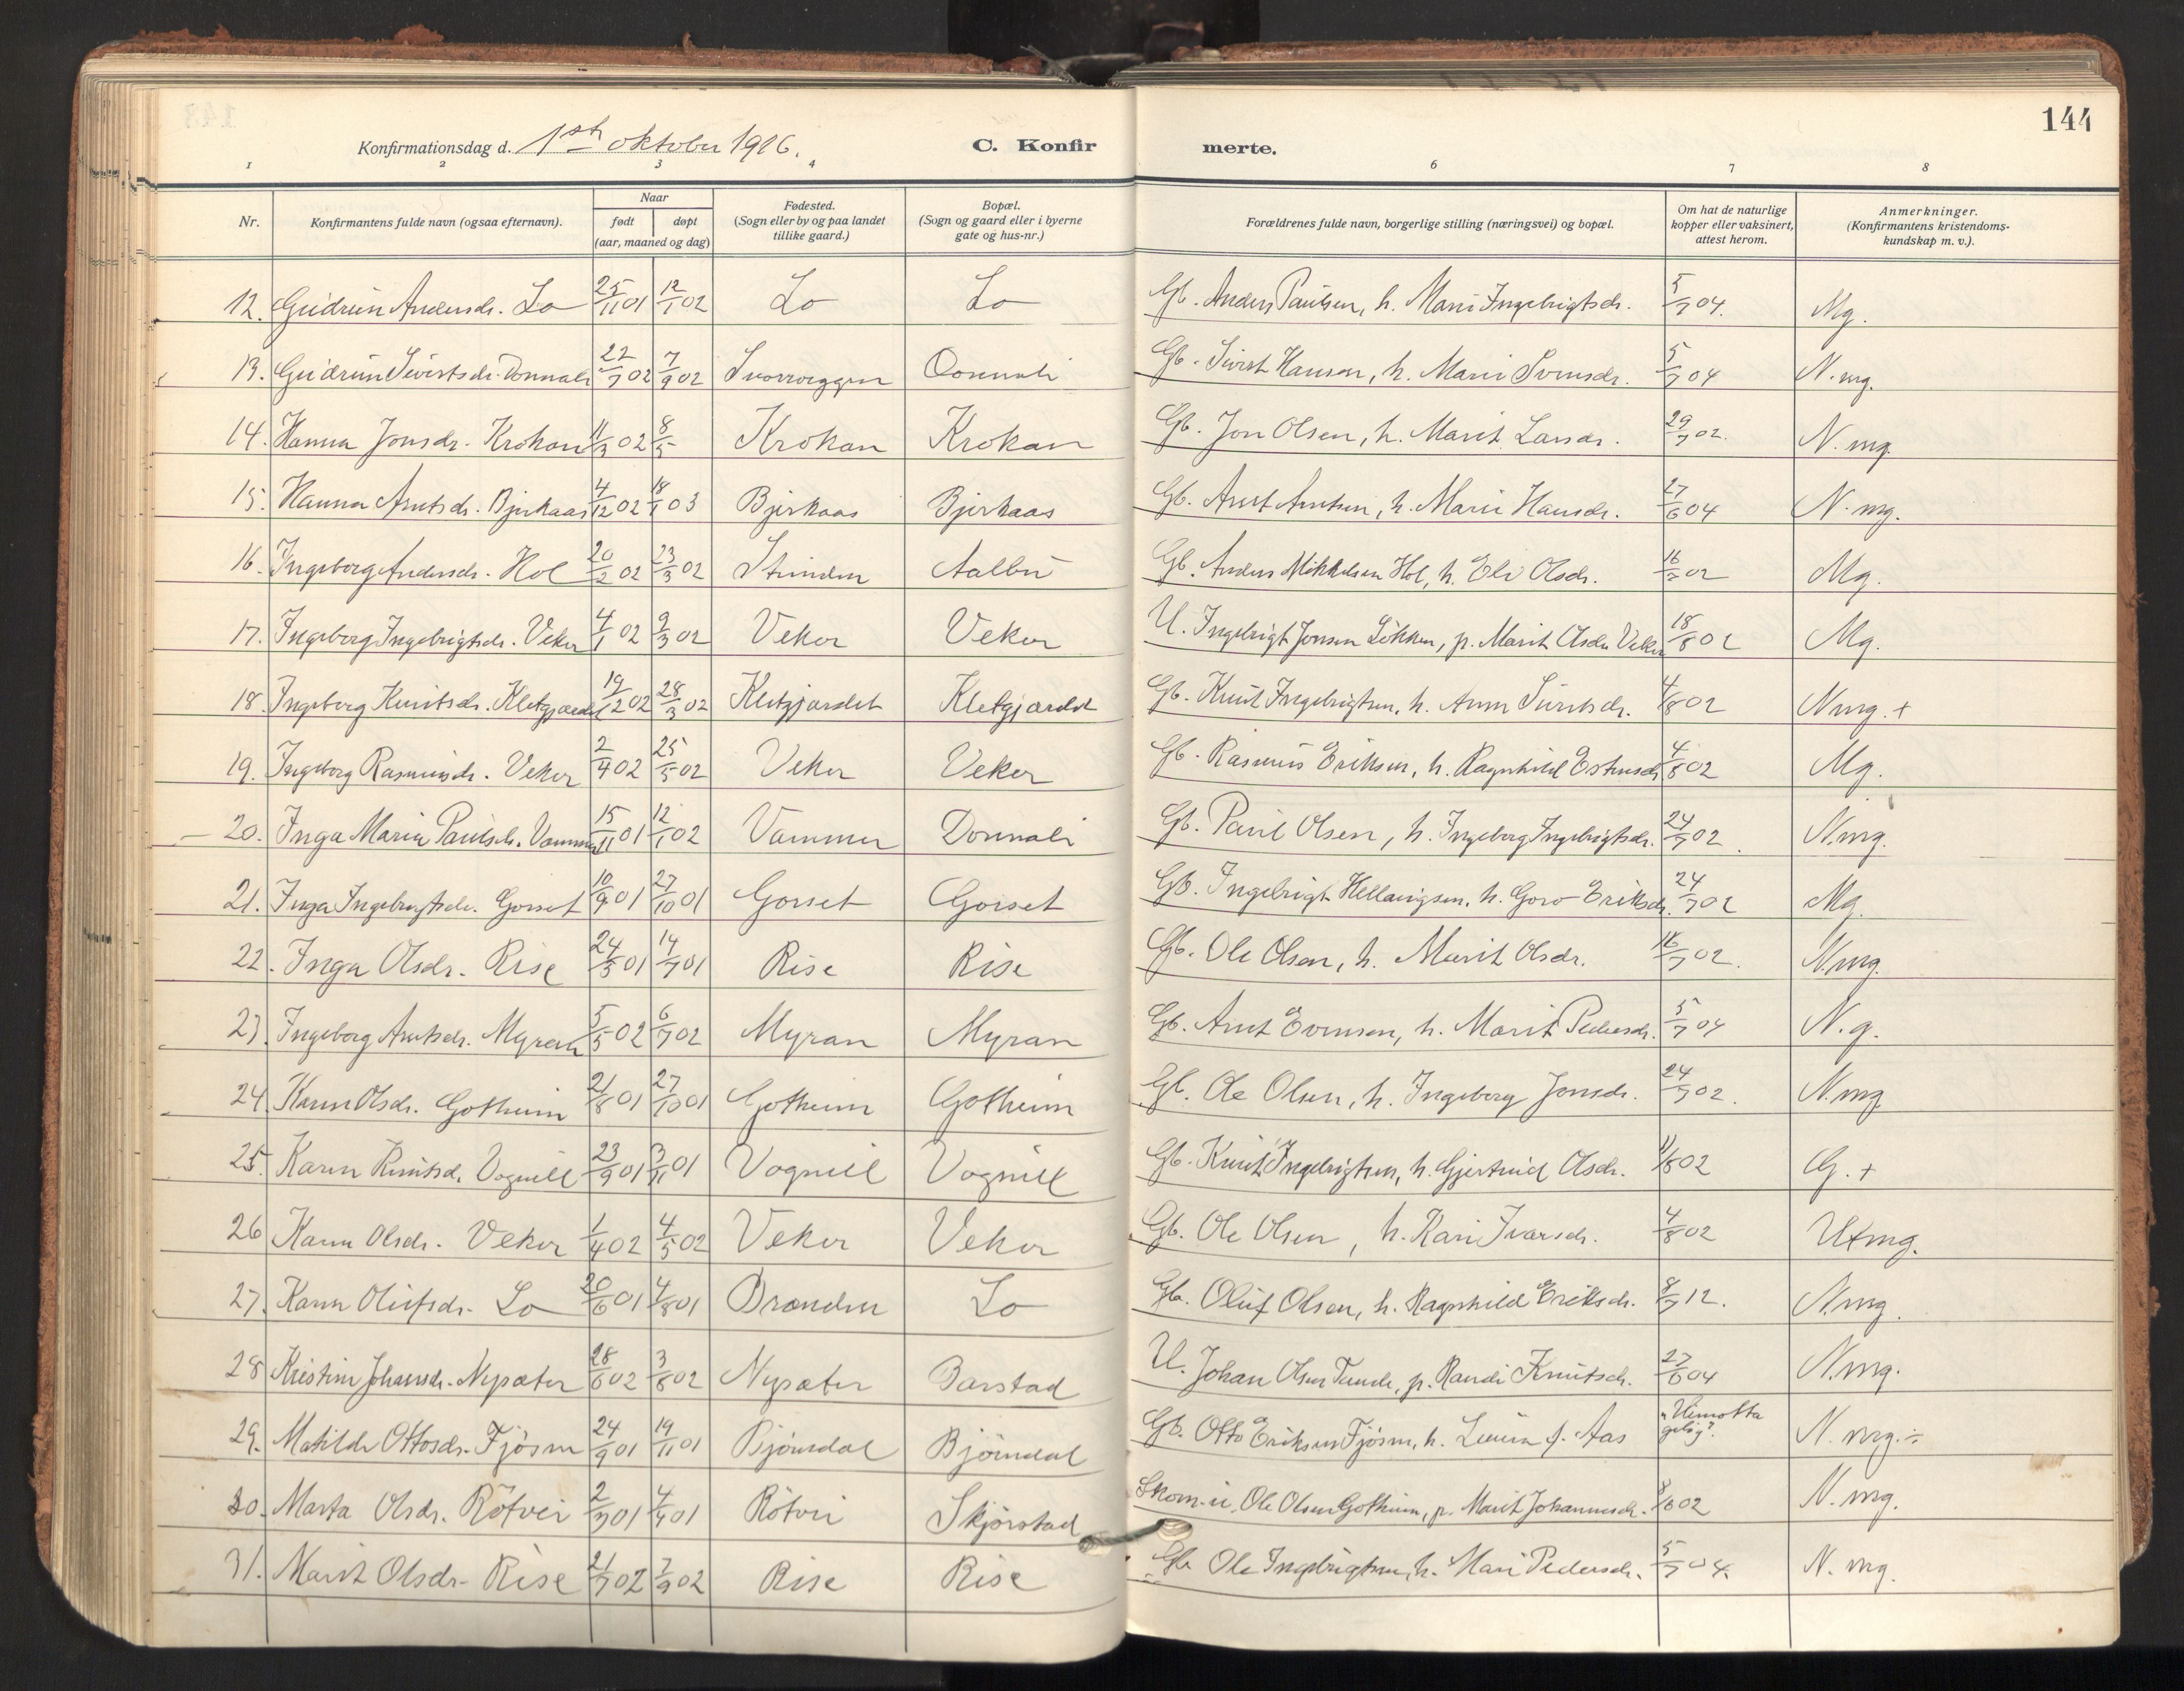 144
Konfirmationsdag d. 1ste oktober 1916.
C. Konfirmerte.
1 2 3 4 6 7 8
Nr. | Konfirmantens fulde navn (ogsaa efternavn). | Naar født | døpt (aar, maaned og dag) | Fødested. (Sogn eller by og paa landet tillike gaard.) | Bopæl. (Sogn og gaard eller i byerne gate og hus-nr.) | Forældrenes fulde navn, borgerlige stilling (næringsvei) og bopæl. | Om hat de naturlige kopper eller vaksinert, attest herom. | Anmerkninger. (Konfirmantens kristendoms-kundskap m. v.).
12. Gudrun Andersdr. Lo 25/11 01 12/1 02 Lo Lo Gb. Anders Paulsen, h. Mari Ingebrigtsdr. 5/7 04. Mg.
13. Gudrun Sivertsdr. Donnali 22/7 02 7/9 02 Donnali Gb. Sivert Hansen, h. Mari Svensdr. 5/7 04 N. mg.
14. Hanna Jonsdr. Krokan 11/3 02 8/5 Krokan Krokan Gb. Jon Olsen, h. Marit Larsdr. 29/7 02. N. mg.
15. Hanna Arntsdr. Bjerkaas 4/12 02 18/1 03 Bjerkaas Bjerkaas Gb. Arnt Arntsen, h. Mari Hansdr. 27/6 04 N. mg.
16. Ingeborg Andersdr. Hol 20/2 02 23/3 02 Strinden Aalbu Gb. Anders Mikkelsen Hol, h. Eli Olsdr. 02 Mg.
17. Ingeborg Ingebrigtsdr. Veker 4/1 02 9/3 02 Veker Veker U. Ingebrigt Jonsen Løkken, p. Marit Olsdr. Veker 18/8 02 Mg.
18. Ingeborg Knutsdr. Kletgjærdet 19/1 02 28/3 02 Kletgjærdet Kletgjærdet Gb. Knut Ingebrigtsen, h. Anne Sivertsdr. 4/8 02 Nmg. +
19. Ingeborg Rasmusdr. Veker 2/4 02 25/5 02 Veker Veker Gb. Rasmus Eriksen, h. Ragnhild Estensdr. 4/8 02 Mg.
20. Inga Maria Paulsdr. Vammer 15/11 01 12/1 02 Vammer Donnali Gb. Paul Olsen, h. Ingeborg Ingebrigtsdr. 24/7 02. N. mg.
21. Inga Ingebrigtsdr. Gorset 10/9 01 27/10 01 Gorset Gorset Gb. Ingebrigt Hallvorgsen, h. Goro Eriksdr. 24/7 02 Mg.
22. Inga Olsdr. Rise 24/5 01 14/7 01 Rise Rise Gb. Ole Olsen, h. Marit Olsdr. 16/7 02. N. mg.
23. Ingeborg Arntsdr. Myran 5/5 02 6/7 02 Myran Myran Gb. Arnt Evensen, h. Marit Pedersdr. 5/7 04 N. g.
24. Karen Olsdr. Gotheim 21/8 01 27/10 01 Gotheim Gotheim Gb. Ole Olsen, h. Ingeborg Jonsdr. 24/7 02. N. mg
25. Karen Knutsd. Vognill 23/9 01 3/11 01 Vognill Vognill Gb. Knut Ingebrigtsen, h. Gjertrud Olsdr. 11/8 02 G. +
26 Karen Olsdr. Veker 1/4 02 4/5 02 Veker Veker Gb. Ole Olsen, h. Kari Ivarsdr. 4/8 02 Utmg.
27. Karen Olufsdr. Lo 20/6 01 4/8 01 Brænden Lo Gb. Oluf Olsen, h. Ragnhild Eriksdr. 8/7 12. N. mg.
28 Kristine Johansdr. Nysæter 28/6 02 3/8 02 Nysæter Barstad U. Johan Olsen Tande, p. Randi Knutsdr. 27/6 04 N. mg.
29. Matilde Ottosdr. Fjøsne 24/9 01 19/11 01 Bjørndal Bjørndal Gb. Otto Eriksen Fjøsne, h. Lovise f. Aas „Uimotta gelig". N. mg. ÷
30. Marta Olsdr. Røtvei 2/3 01 4/4 01 Røtvei Skjørstad Skom. u. Ole Olsen Gotheim, p. Marit Johannesdr. 8/6 02 N. mg.
31. Marit Olsdr. Rise 21/7 02 7/9 02 Rise Rise Gb. Ole Ingebrigtsen, h. Mari Pedersdr. 5/7 04. N. mg.